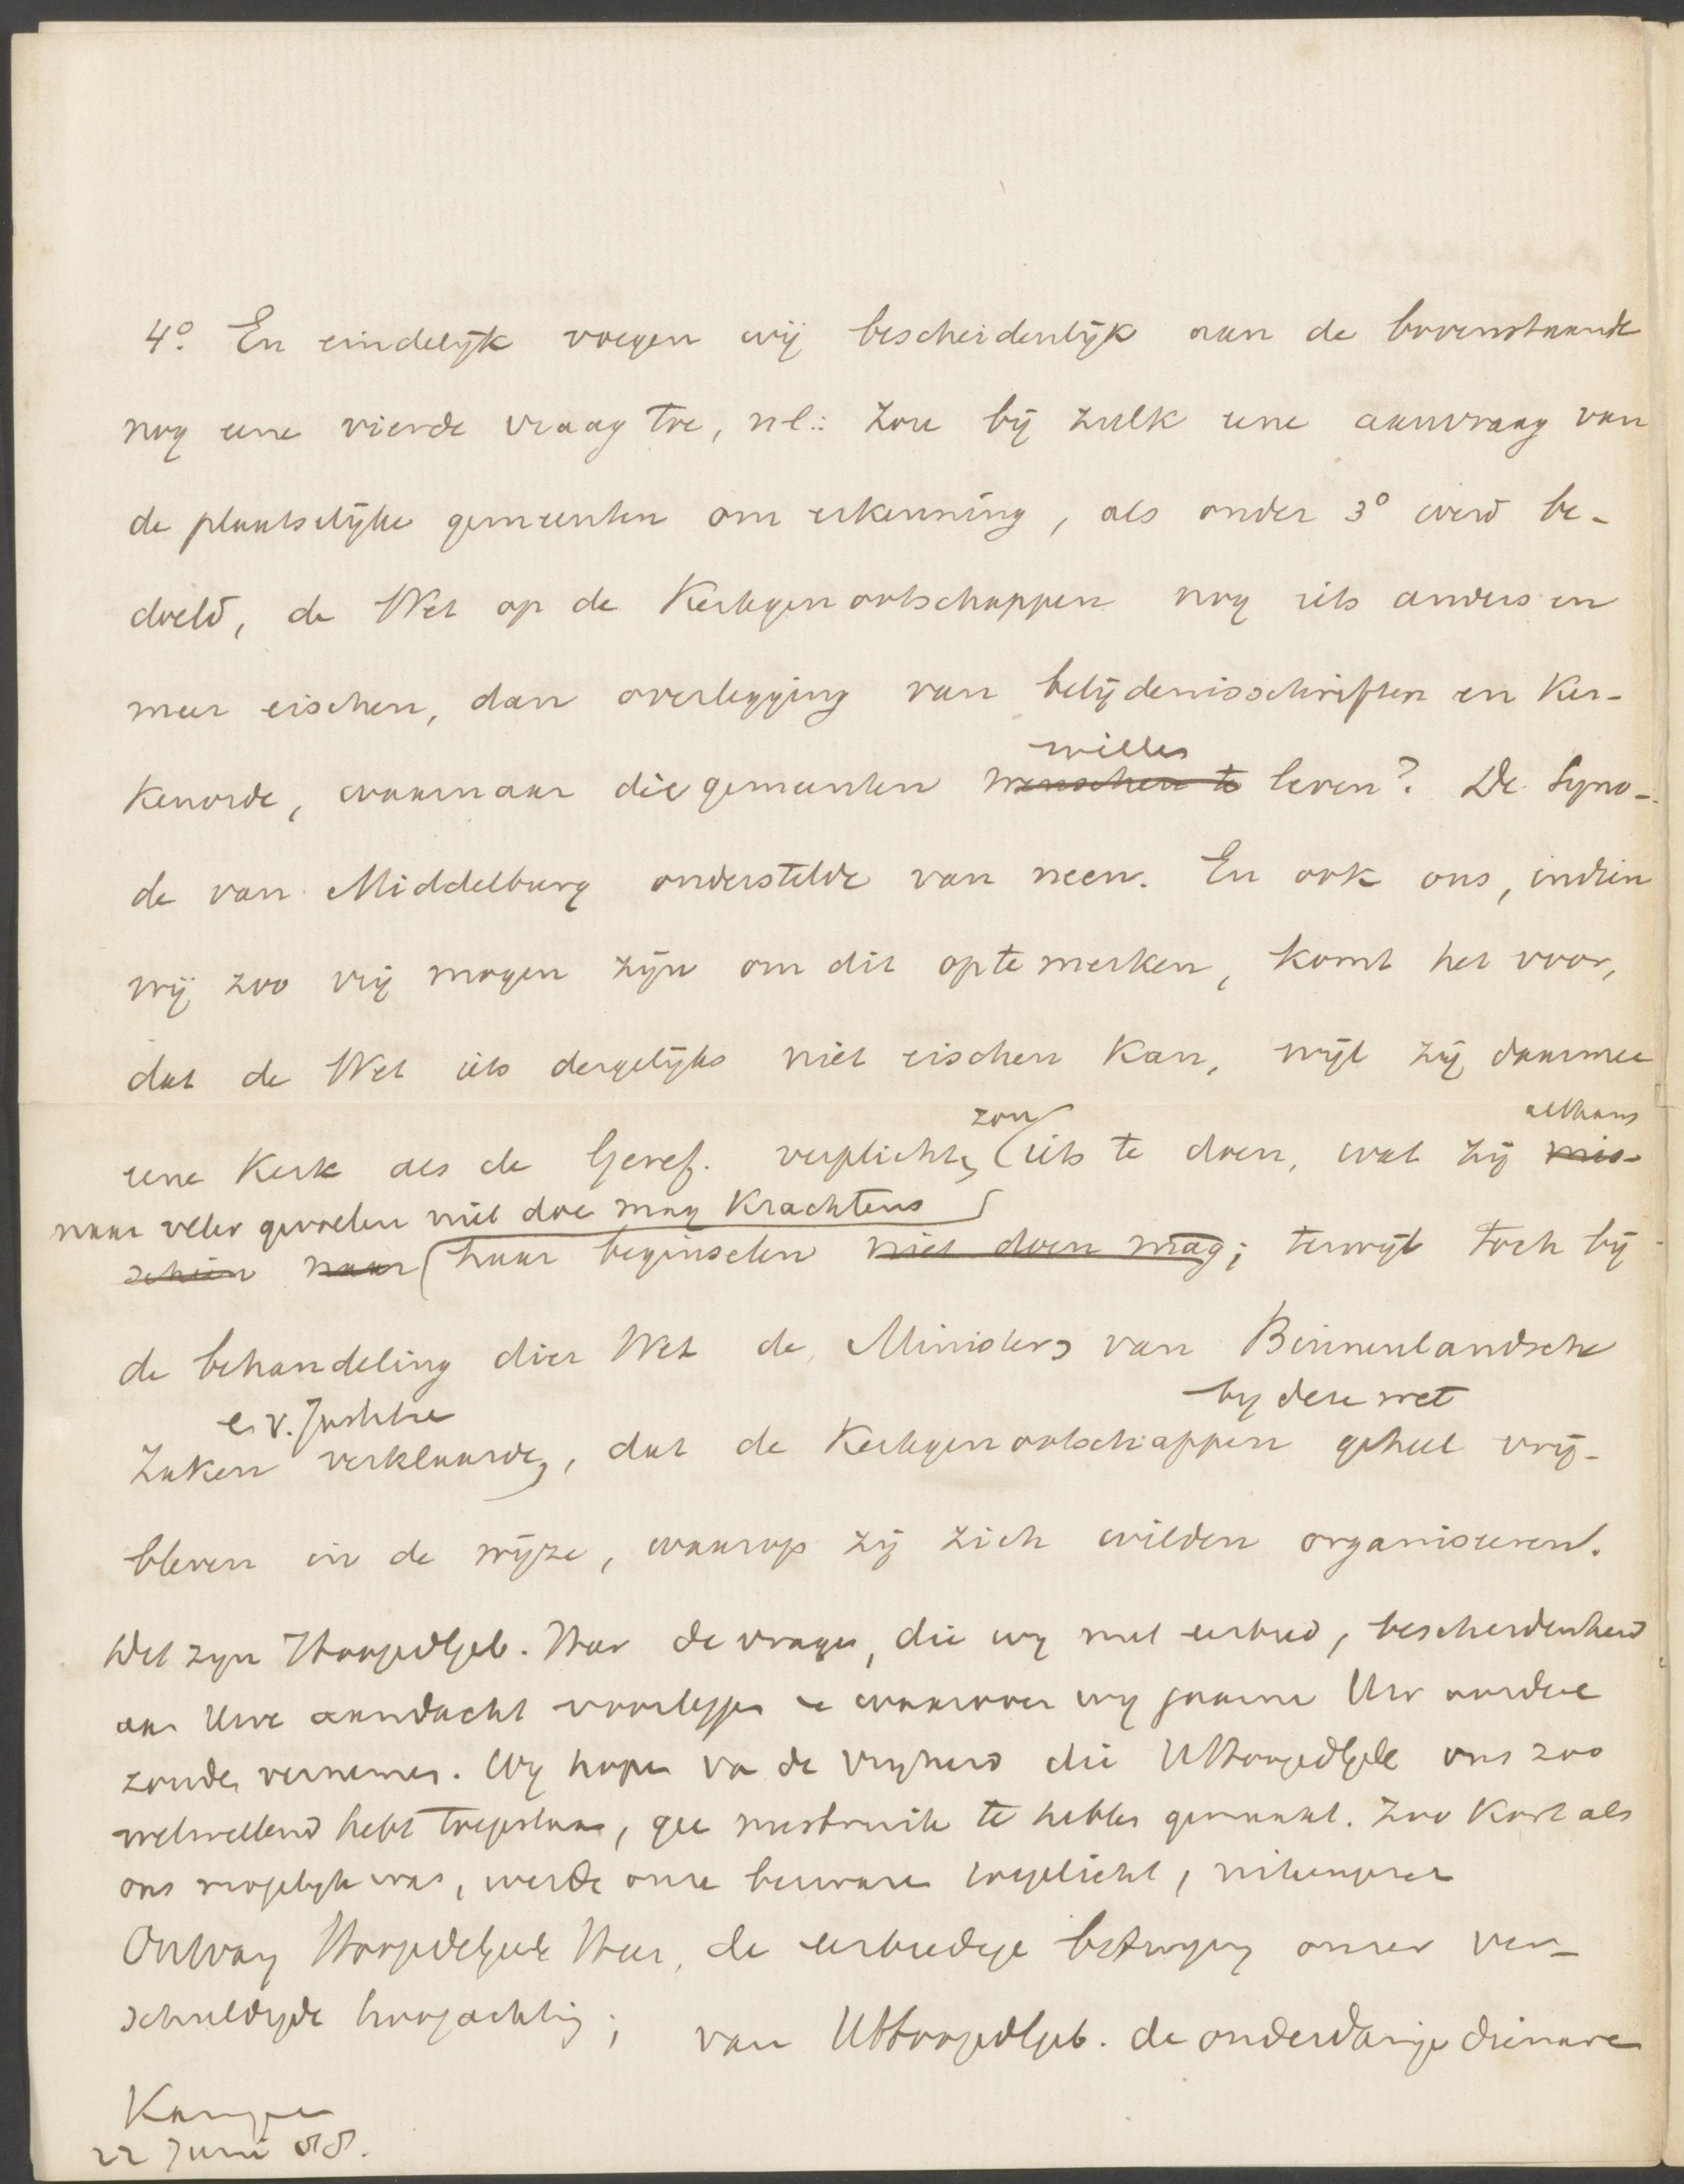 4o. En eindelijk voegen wij bescheidenlijk aan de bovenstaande
nog eene vierde vraag toe, nl.: Zou bij zulk eene aanvraag van
de plaatselijke gemeenten om erkenning, als onder 3o werd be-
doeld, de Wet op de Kerkgenootschappen nog iets anders en
meer eischen, dan overlegging van belijdenisschriften en Ker-
willen
kenorde, waarnaar die gemeenten wenschen te leven? De Syno-
de van Middelburg onderstelde van neen. En ook ons, indien
wij zoo vrij mogen zijn om dit op te merken, komt het voor,
dat de Wet iets dergelijks niet eischen kan, wijl zij daarmee
zou althans
eene Kerk als de Geref. verplichten iets te doen, wat zij mis-
naar veler gevoelen niet doe mag Krachtens
schien naar haar beginselen niet doen mag; terwijl toch bij
de behandeling dier Wet de Ministers van Binnenlandsche
e. v. Justitie by deze wet
Zaken verklaarde, dat de Kerkgenootschappen geheel vrij-
bleven in de wijze, waarop zij zich wilden organiseren.
Dit zyn HoogEdlGeb. Heer de vragen, die wy met eerbied, bescheidenheid
aan Uwe aandacht voorleggen en waarover wy gaarne Uw oordeel
zouden vernemen. Wy hopen van de vryheid die UHoogEdlGeb ons zoo
welwillend hebt toegestaan, geen misbruik te hebben gemaakt. Zoo Kort als
ons mogelyk was, werde onze bezwaren toegelicht,
Ontvang HoogEdelGeb Heer, de eerbiedige betuiging onzer ver-
schuldigde hoogachting; van UHoogEdlGeb. de onderdanige dienaren
Kampen
22 Juni 88.